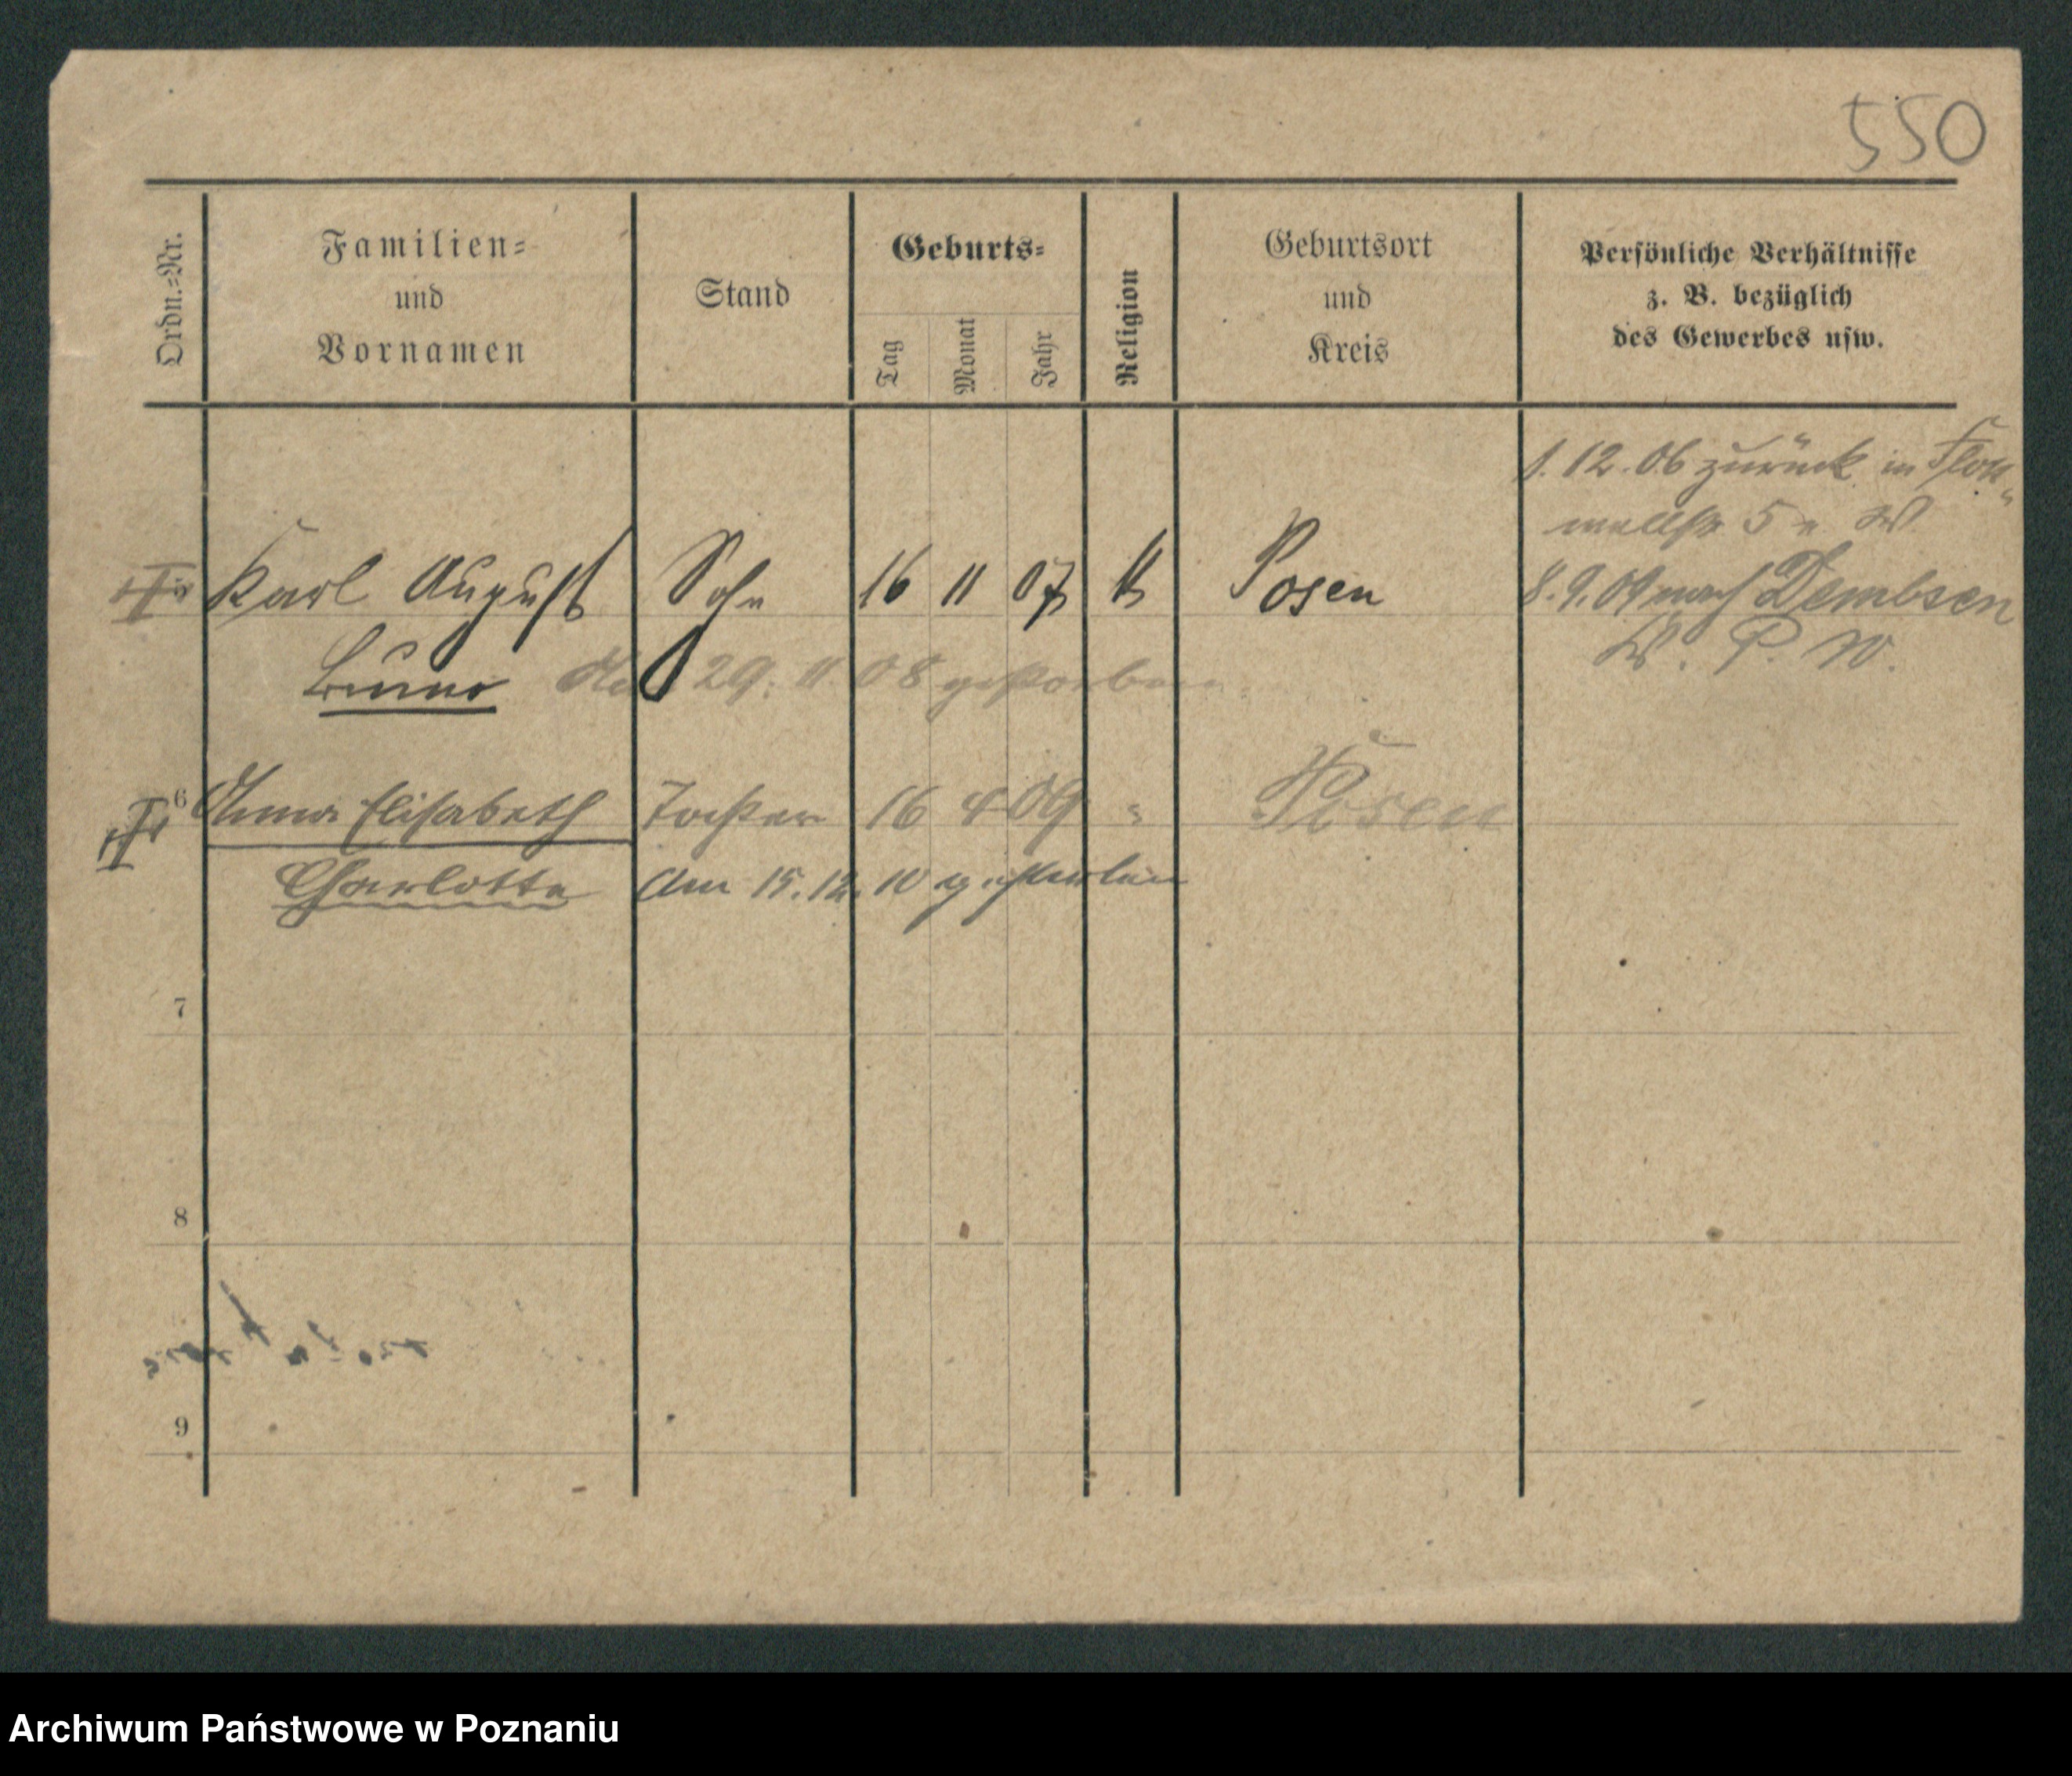 550
Ordn.=Nr.
Familien=
und
Vornamen
Stand
Geburts=
Tag
Monat
Jahr
Religion
Geburtsort
und
Kreis
Persönliche Verhältnisse
z. B. bezüglich
des Gewerbes usw.
1. 12. 06 zurück in
5 W
Karl August Sohn 16 11 07 k Posen
8.9.09 nach Dembsen
W. P. W.
Bruno 29. 11 08 gestorben
6 Anna Elisabeth Tochter 16 4 09 " Posen
Charlotte Am 15. 12. 10 gestorben
7
8
9
Archiwum Państwowe w Poznaniu